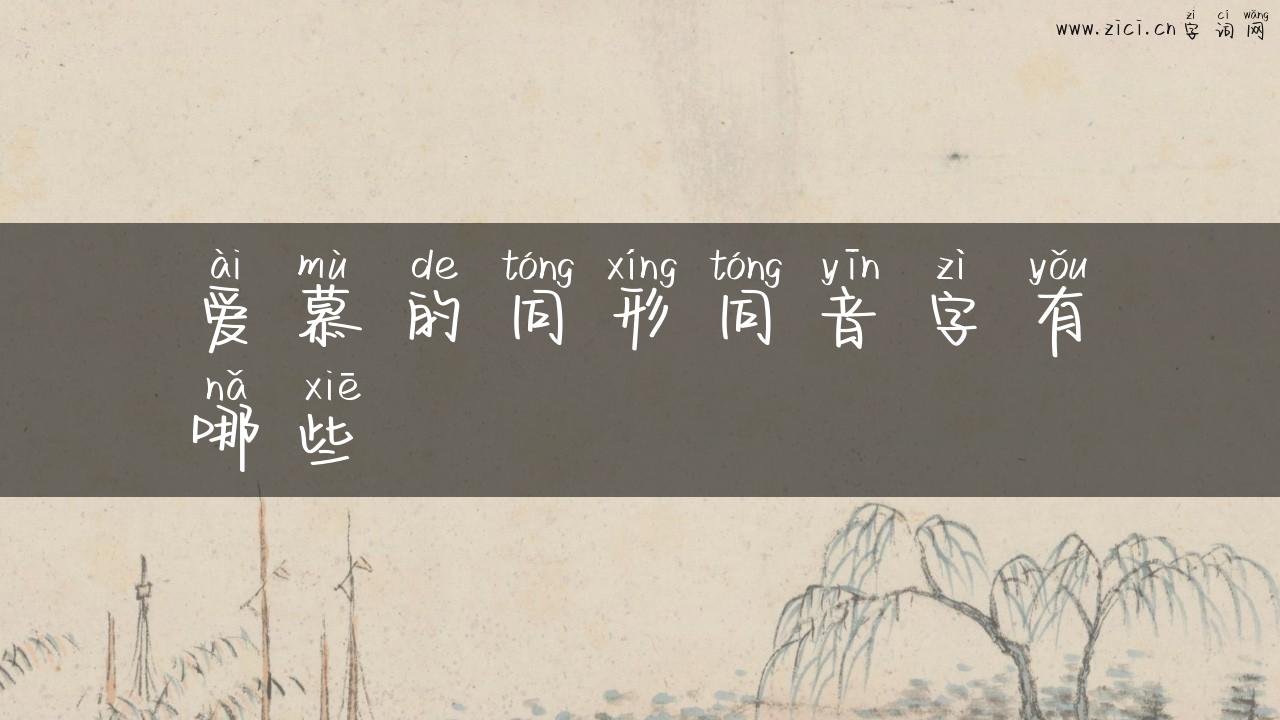 zì cí wǎng
www.zici.cn 字词网
ài mù de tóng xíng tóng yīn zì yǒu
爱慕的同形同音字有
nǎ xiē
哪些